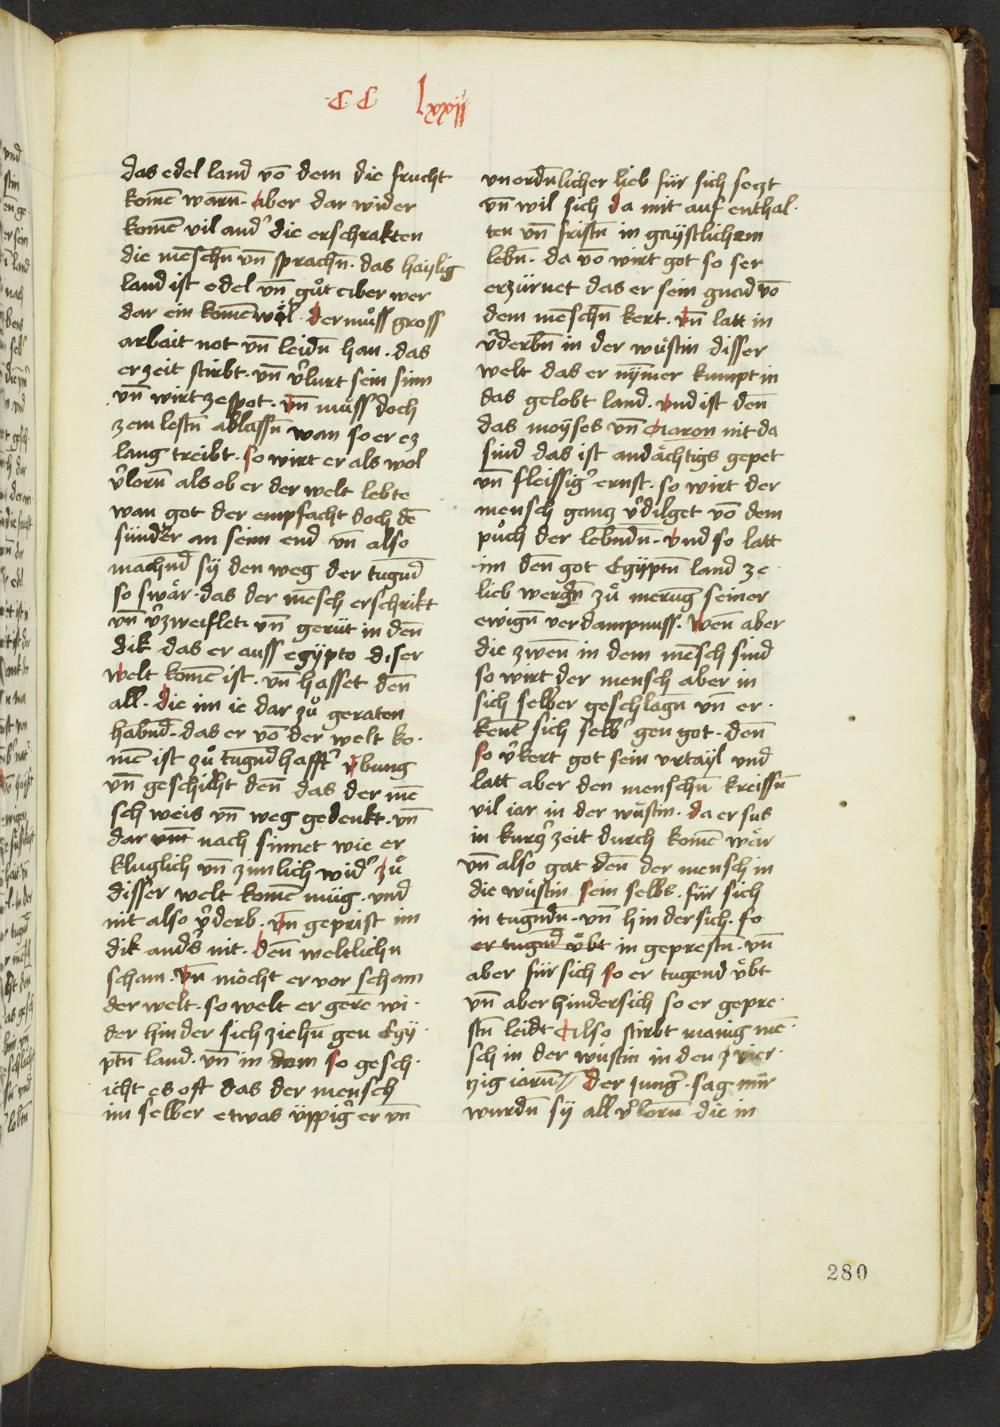 CC lxxij
das edel land vō dem die frucht
komē warn̄. Aber dar wider
komē vil and' die erschrakten
die mēschn̄ vn̄ sprachn̄. das haylig
land ist edel vn̄ gůt aber wer
dar ein komē wöl. der můss gross
arbait not vn̄ leidn̄ han. das
er zeit stirbt. vn̄ v'lurt sein sinn
vn̄ wirt ze spot. Vn̄ můss doch
zem lestn̄ ablassn̄ wan so er ez
lang treibt. so wirt er als wol
v'lorn̄ als ob er der welt lebte
wan got der empfacht doch dē
sünder an seim end vn̄ also
machnd sy den weg der tugnd
so swär. das der mēsch erschrikt
vn̄ v'zweiflet. vn̄ gerüt in den̄
dik das er auss egypto diser
welt komē ist. vn̄ hasset den̄
all. die im ie dar zů geraten
habnd. das er vō der welt ko.
mē ist zů tugndhafft' vbung
vn̄ geschiht den̄ das der mē
sch weis vn̄ weg gedenkt. vn̄
dar vm̄ nach sinnet wie er
kluglich vn̄ zimlich wid' zů
disser welt komē müg. vnd
nit also v'derb. Vn̄ geprist im
dik and's nit. den̄ weltlichn
scham. Vn̄ möcht er vor scham
der welt. so welt er gere wi.
der hinder sich ziehn̄ gen Egy.
ptn̄ land. vn̄ in dem so gesch.
icht es oft das der mensch
im selber etwas üppig' er vn̄
vnordn̄licher lieb für sich seczt
vn̄ wil sich da mit auf enthal.
ten vn̄ fristn̄ in gaystlichem
lebn̄. da vō wirt got so ser
erzürnet das er sein gnad vō
dem mēschn̄ kert. Vn̄ latt in
v'derbn̄ in der wüstin disser
welt das er nym̄er kumpt in
das gelobt land. Vnd ist den̄
das moyses vn̄ Aaron nit da
sind das ist andächtigs gepet
vn̄ fleissig' ernst. so wirt der
mensch gancz v'dilget vō dem
půch der lebndn̄. Vnd so latt
im den̄ got Egyptn̄ land ze
lieb werdn̄ zů merug seiner
ewign̄ verdampnuss. Wen̄ aber
die zwen̄ in dem mēsch sind
so wirt der mensch aber in
sich selber geschlagn̄ vn̄ er.
kent sich selb' gen got. den̄
so v'kert got sein vrtayl vnd
latt aber den menschn̄ kreissn̄
vil iar in der wüstin. da er sus
in kurcz' zeit durch komē wär
vn̄ also gat den̄ der mensch in
die wüstin sein selbs. für sich
in tugndn̄. vn̄ hindersich. so
er tugnd übt in geprestn̄. vn̄
aber für sich so er tugend übt
vn̄ aber hindersich so er gepre.
stn̄ leidt Also stirbt manig mē.
sch in der wüstin in den zvier.
czig iarn̄ // Der Jung'. sag mir
wurdn̄ sy all v'lorn̄ die in
280